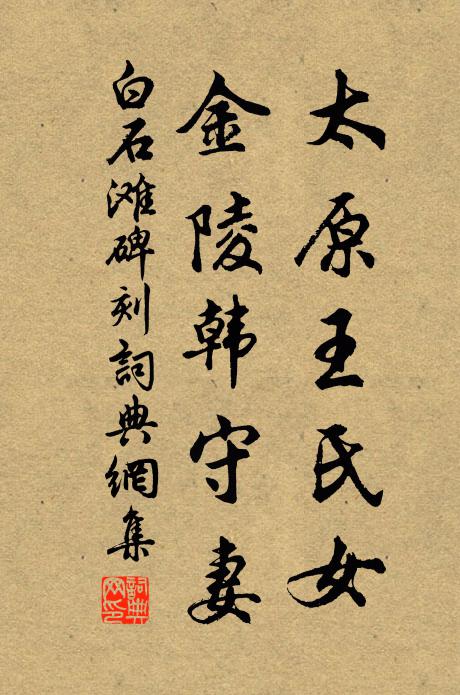 太原王氏女
金陵韩守妻
白石滩碑刻詞典網集
詞典网印